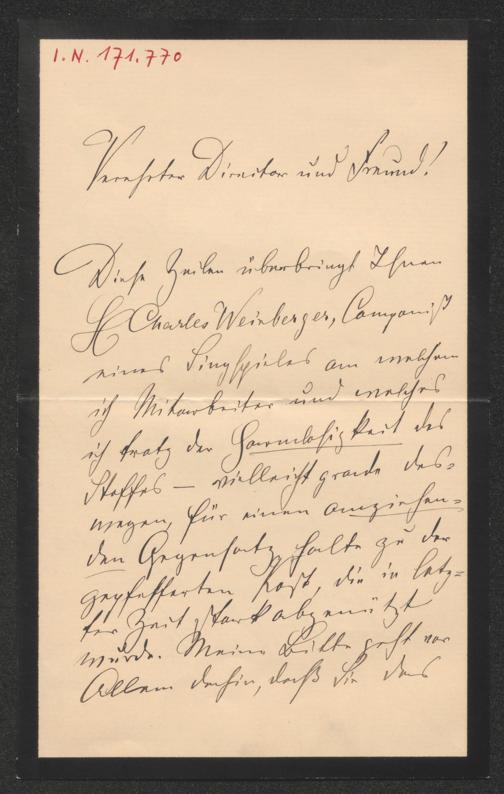 I.N. 171.770
Verehrter Director und Freund!
Diese Zeilen überbringt Ihnen
H Charles Weinberger, Componist
eines Singspieles an welchem
ich Mitarbeiter und welches
ich trotz der Harmlosigkeit des
Stoffes – vielleicht grade des-
wegen, für einen anziehen-
den Gegensatz halte zu der
gepfefferten Kost, die in letz-
ter Zeit stark abgenützt
wurde. Meine Bitte geht vor
Allem dahin, daß Sie das